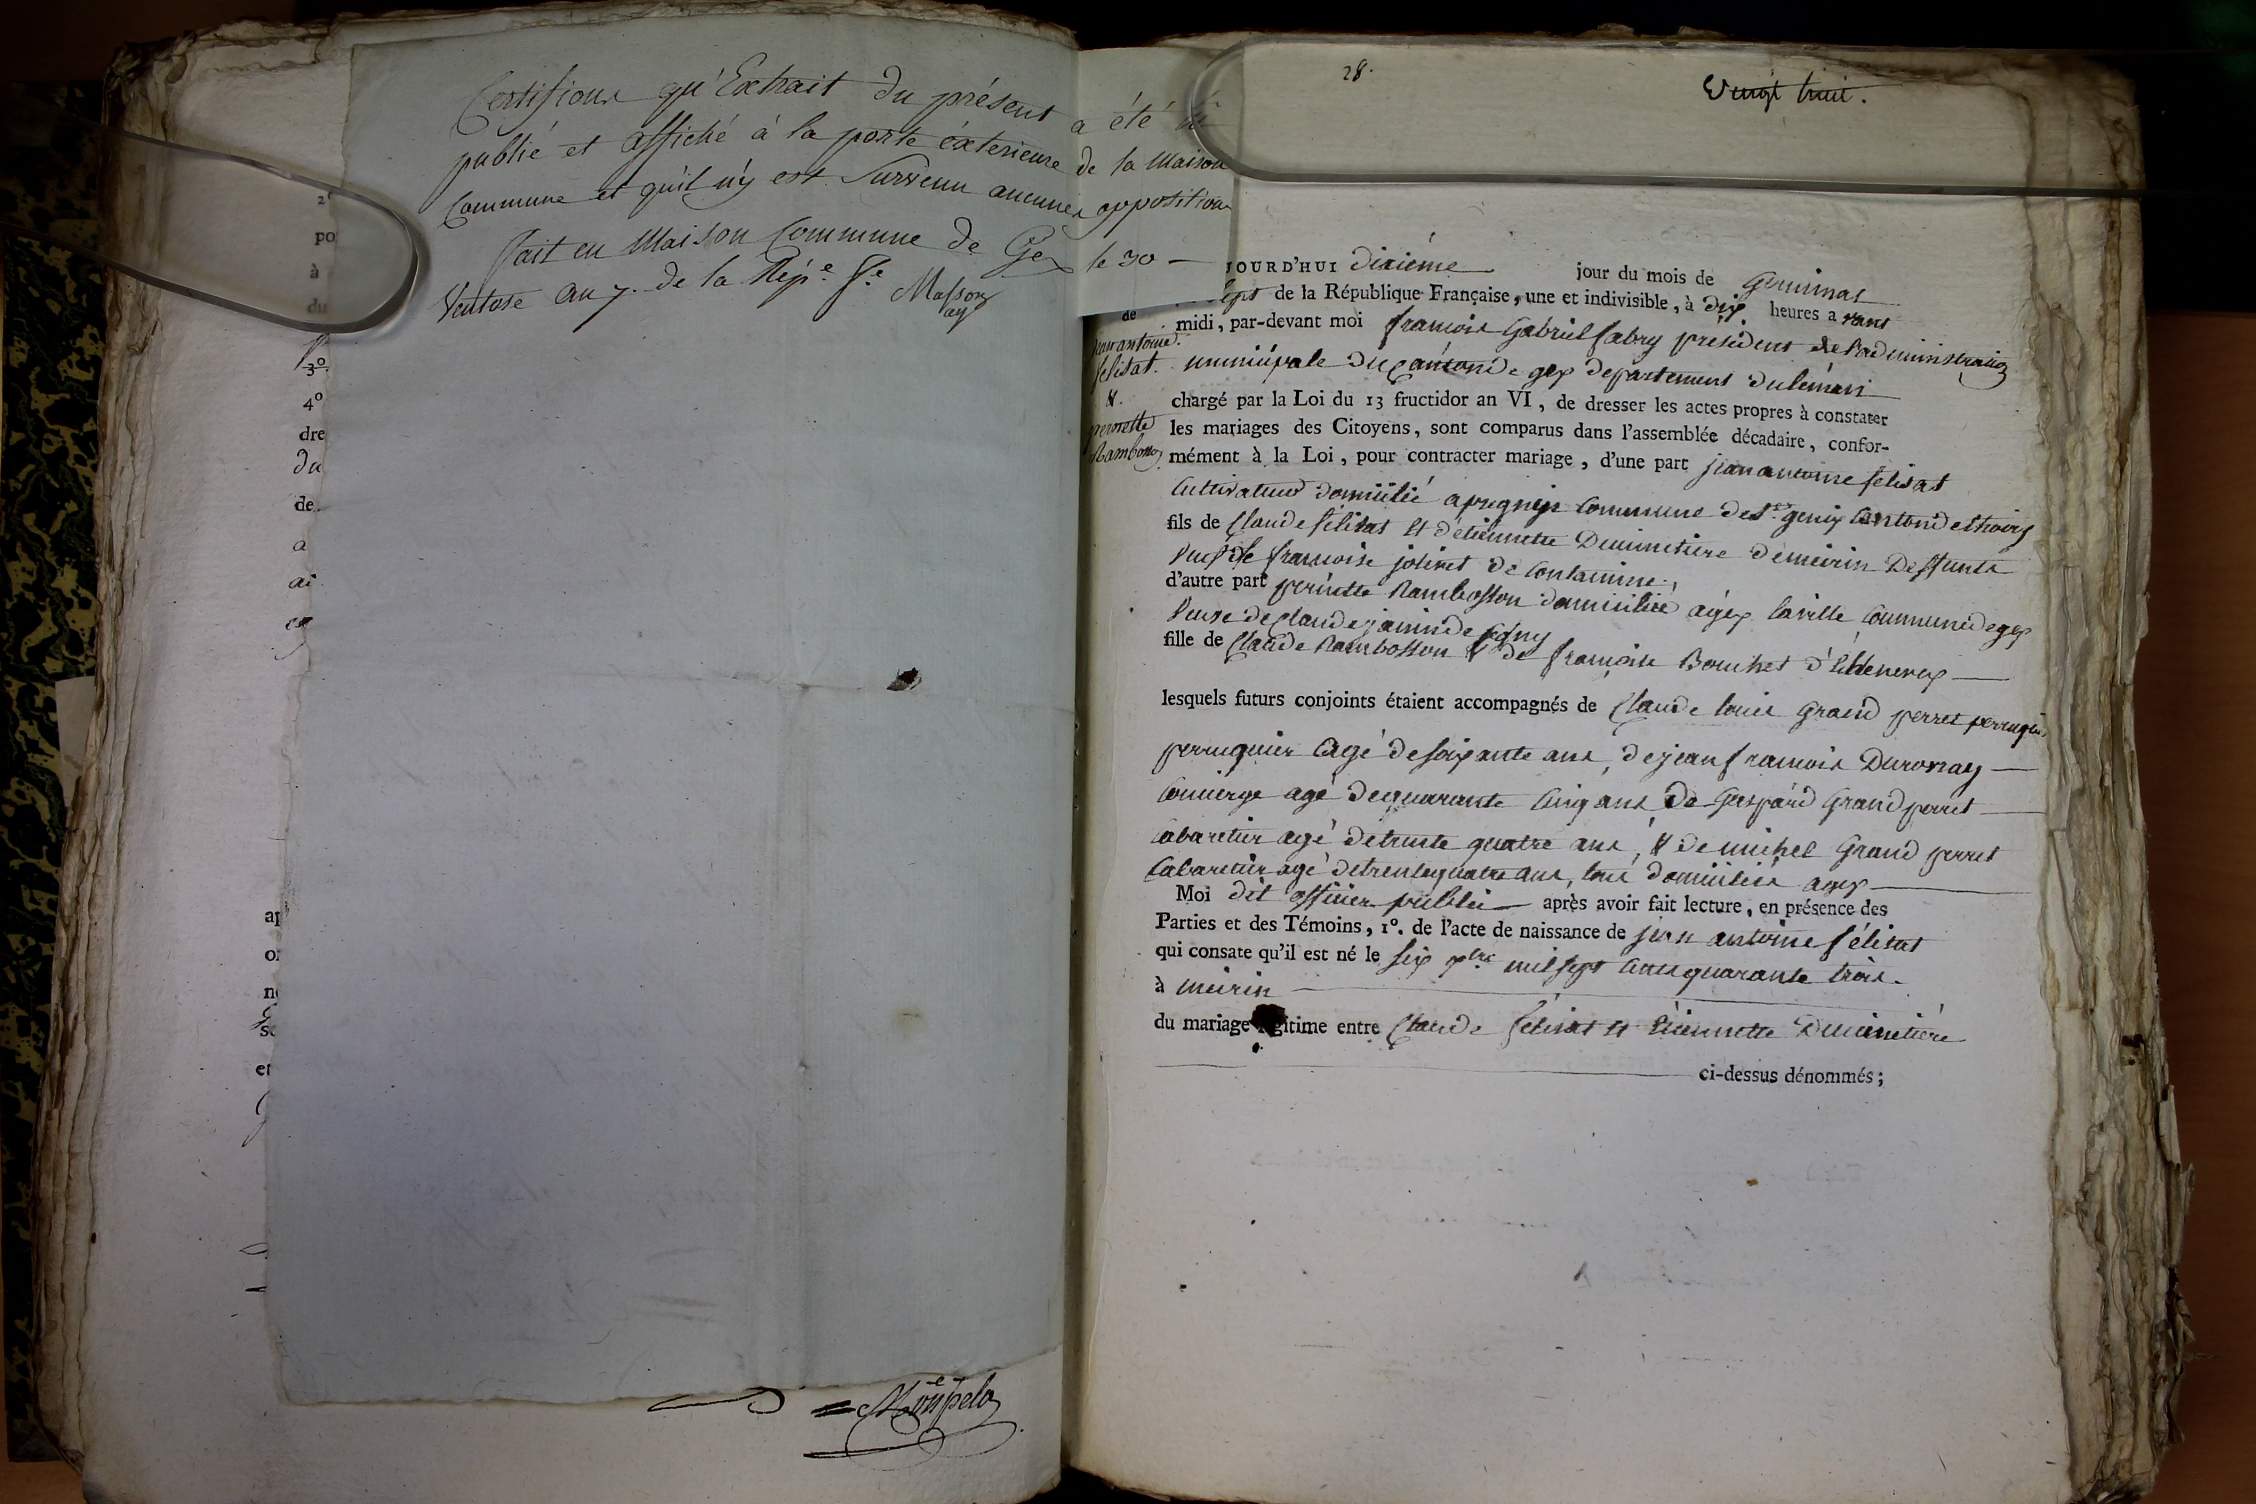 Certifions qu'Extrait du présent a été
publié et affiché à la porte éxterieure de la Maison
Commune et qu'il n'y est Survenu aucunes oppositions
fait en Maison Commune de Gex le 30 —
Ventose an 7. de la Rép.e f.e Masson
ay
po
à
du
3°
4°
dre
du
de
a
ai
ap
Monpela
28.
Vingt huit.
JOURD'HUI dixiéme jour du mois de Germinal
sept de la République Française, une et indivisible, à dix heures avant
midi, par-devant moi francois Gabriel fabry président de l'administration
municipale du canton de gex departement du léman
de
jean antoine
félisat.
&.
pernette
Rambosson
chargé par la Loi du 13 fructidor an VI, de dresser les actes propres à constater
les mariages des Citoyens, sont comparus dans l'assemblée décadaire, confor-
mément à la Loi, pour contracter mariage, d'une part jean antoine félisat
Cultivateur domicilié a pregnin Commune de St. genix Canton de thoiry
fils de Claude félisat et d'étiennette Ducimetiere de meirin Deffunts
veuf de francoise jolivet de Contamine.,
d'autre part pernette Rambosson domiciliée à gex la ville Commune de gex
veuve de Claude janin de Segny
fille de Claude Rambosson & de françoise Bouchet d'Echenevex —
lesquels futurs conjoints étaient accompagnés de Claude louis Grand perret perruquier
perruquier agé de soixante ans, de jean francois Duronzay —
Concierge agé de quarante Cinq ans, de Gaspard Grand perret —
Cabaretier agé de trente quatre ans, & de michel Grand perret
Cabaretier agé de trente quatre ans, tous domiciliés a gex —
Moi dit officier public — après avoir fait lecture, en présence des
Parties et des Témoins, 1°. de l'acte de naissance de jean antoine félisat
qui consate qu'il est né le six mil sept Cents quarante trois.
à meirin —
du mariage légitime entre Claude félisat et Etiennette Ducimetiére
ci-dessus dénommés;